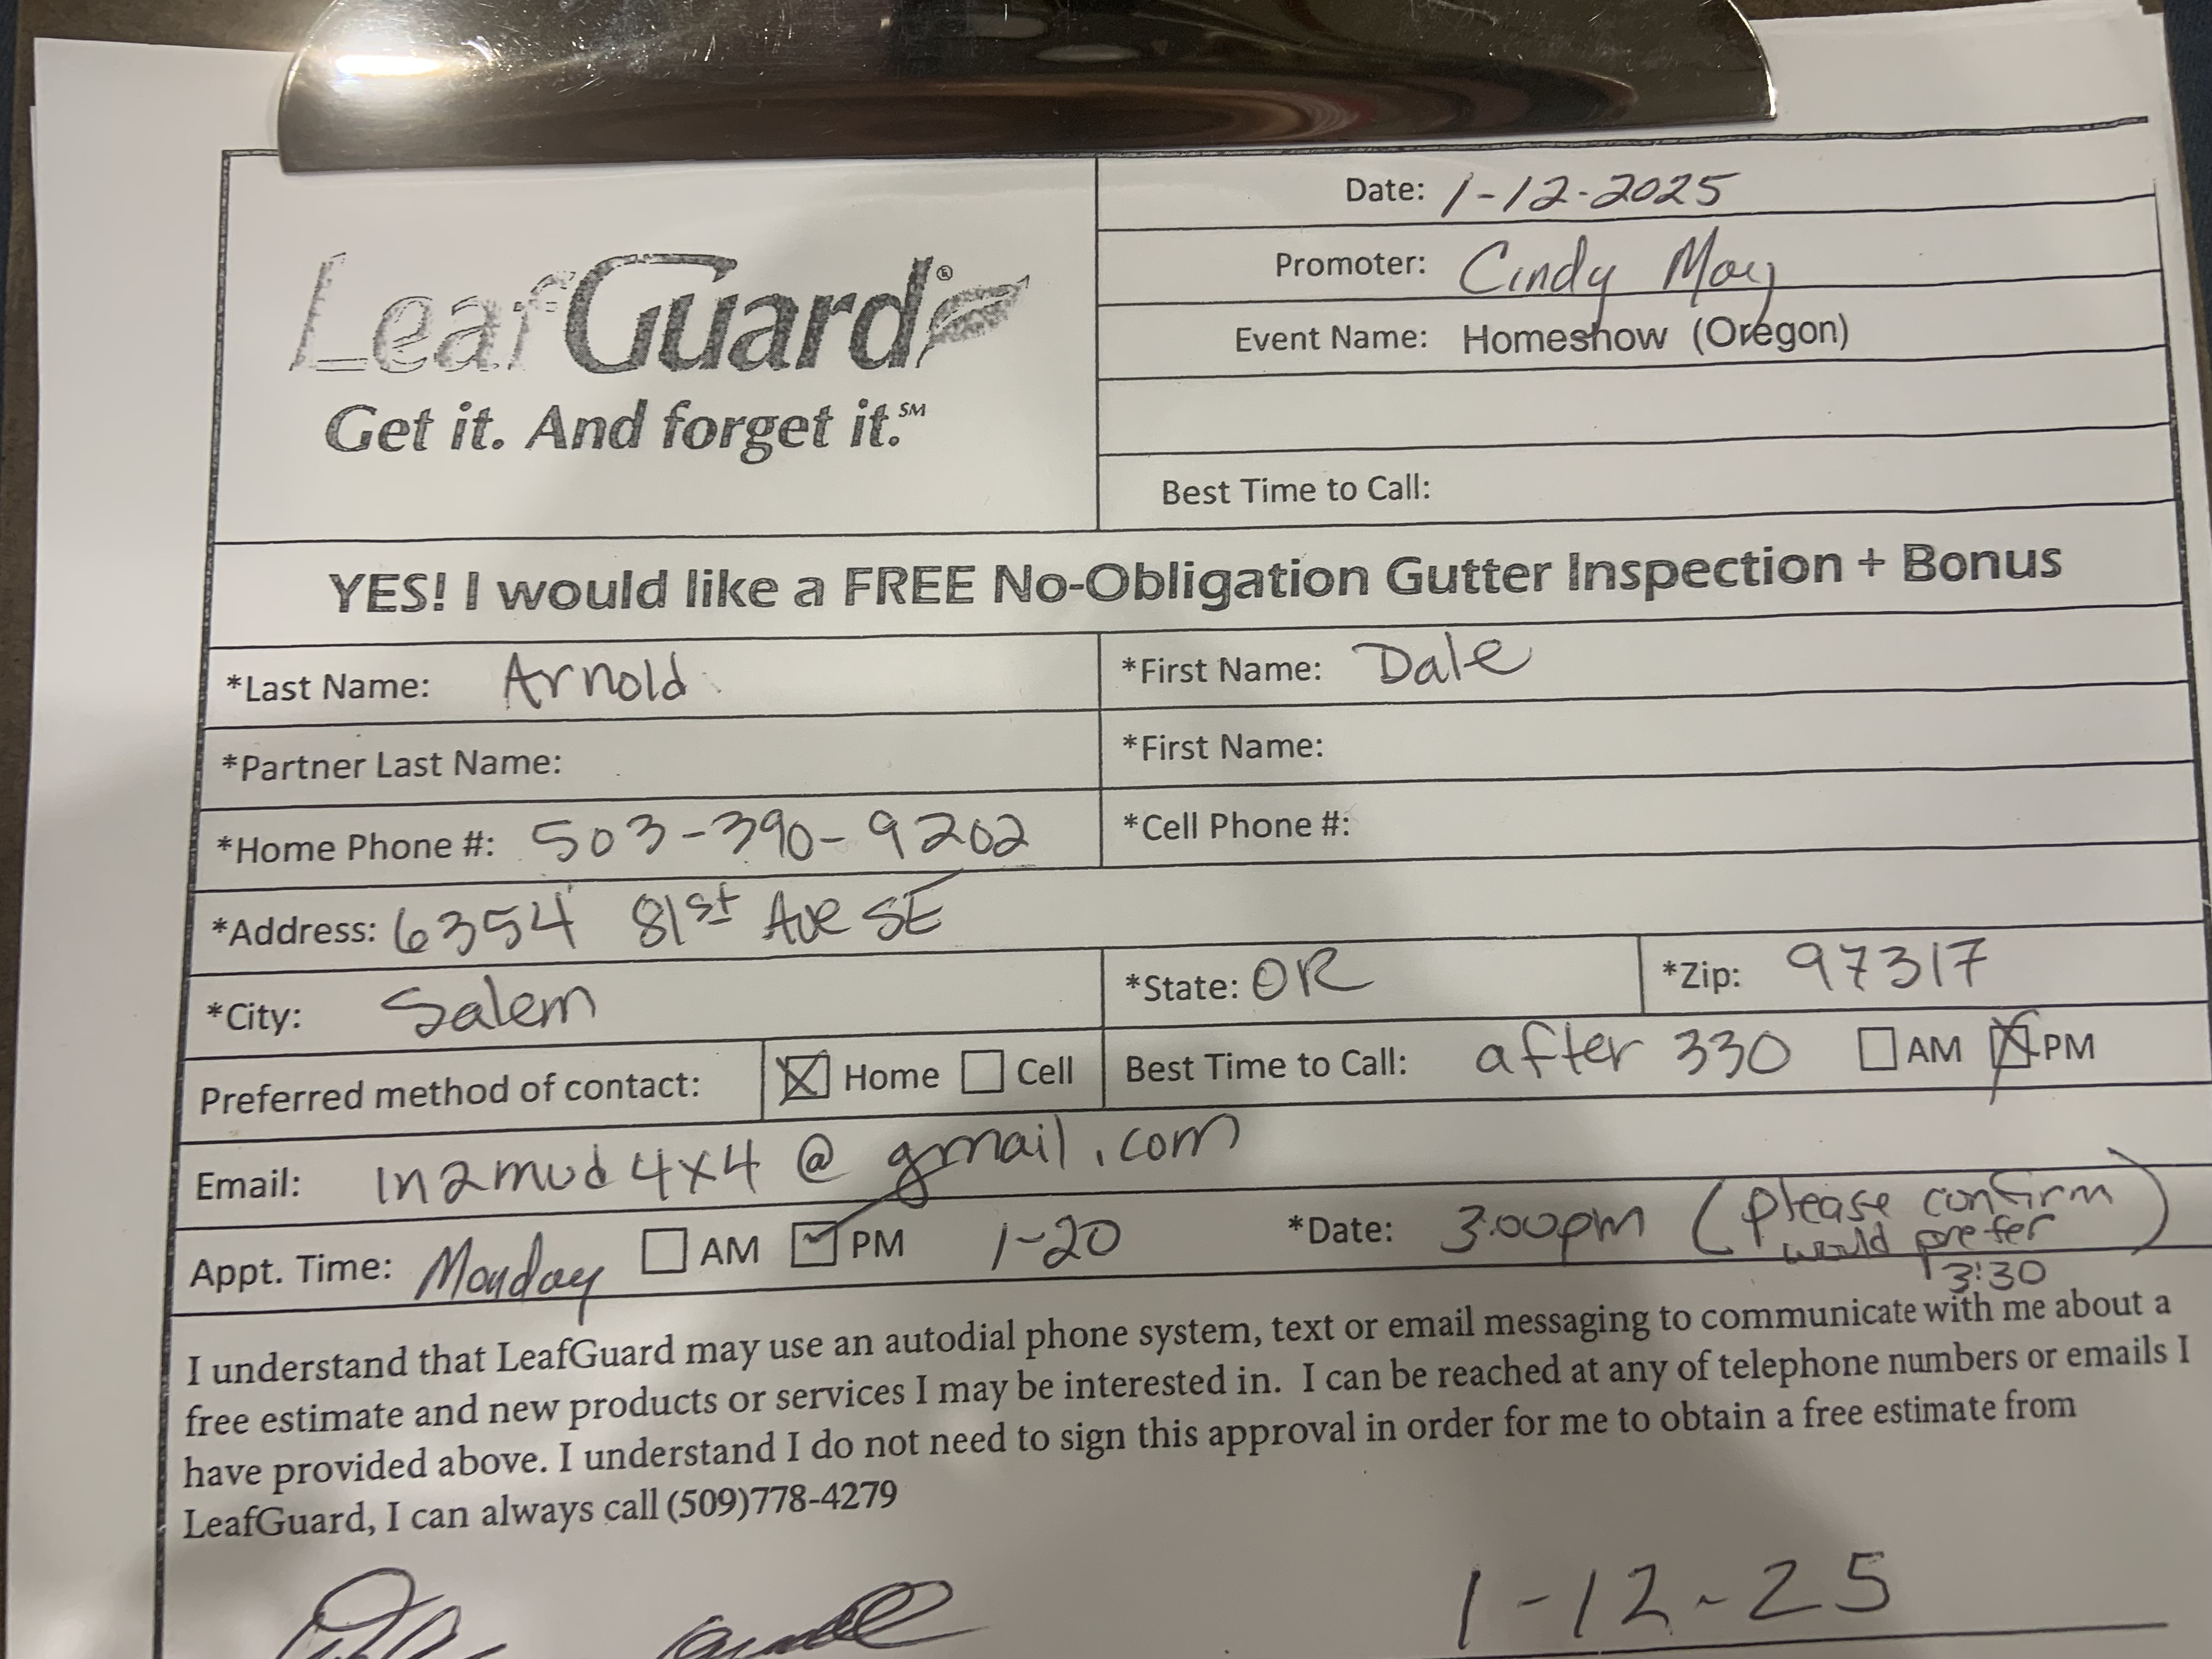 LeafGuard®
Get it. And forget it.℠
Date: 1-12-2025
Promoter: Cindy May
Event Name: Homeshow (Oregon)
Best Time to Call:
YES! I would like a FREE No-Obligation Gutter Inspection + Bonus
*Last Name: Arnold *First Name: Dale
*Partner Last Name: *First Name:
*Home Phone #: 503-390-9202 *Cell Phone #:
*Address: 6354 81st Ave SE
*City: Salem *State: OR *Zip: 97317
Preferred method of contact: ☒ Home ☐ Cell Best Time to Call: after 330 ☐ AM ☒ PM
Email: in2mud4x4@gmail.com
Appt. Time: Monday ☐ AM ☑ PM 1-20 *Date: 3:00pm (please confirm)
would prefer
3:30
I understand that LeafGuard may use an autodial phone system, text or email messaging to communicate with me about a
free estimate and new products or services I may be interested in. I can be reached at any of telephone numbers or emails I
have provided above. I understand I do not need to sign this approval in order for me to obtain a free estimate from
LeafGuard, I can always call (509)778-4279
1-12-25